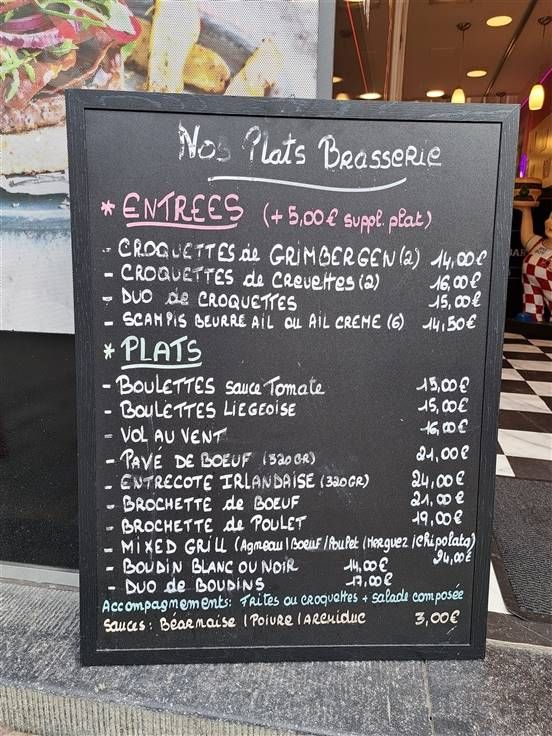 Nos Plats Brasserie
* ENTREES (+5,00€ suppl. plat)
- CROQUETTES de GRIMBERGEN (2) 14,00€
- CROQUETTES de Crevettes (2) 16,00€
- DUO de CROQUETTES 15,00€
- SCAMPIS BEURRE AIL ou AIL CREME (6) 14,50€
* PLATS
- BOULETTES sauce Tomate 15,00€
- BOULETTES LIEGEOISE 15,00€
- VOL AU VENT 16,00€
- PAVÉ DE BOEUF (320GR) 21,00€
- ENTRECOTE IRLANDAISE (320GR) 24,00€
- BROCHETTE de BOEUF 21,00€
- BROCHETTE de POULET 19,00€
- MIXED GRILL (Agneau/Boeuf/Poulet/Merguez/chipolata) 24,00€
- BOUDIN BLANC OU NOIR 14,00€
- DUO de BOUDINS 17,00€
Accompagnements: Frites ou croquettes + salade composée
Sauces: Béarnaise / Poivre / Archiduc 3,00€